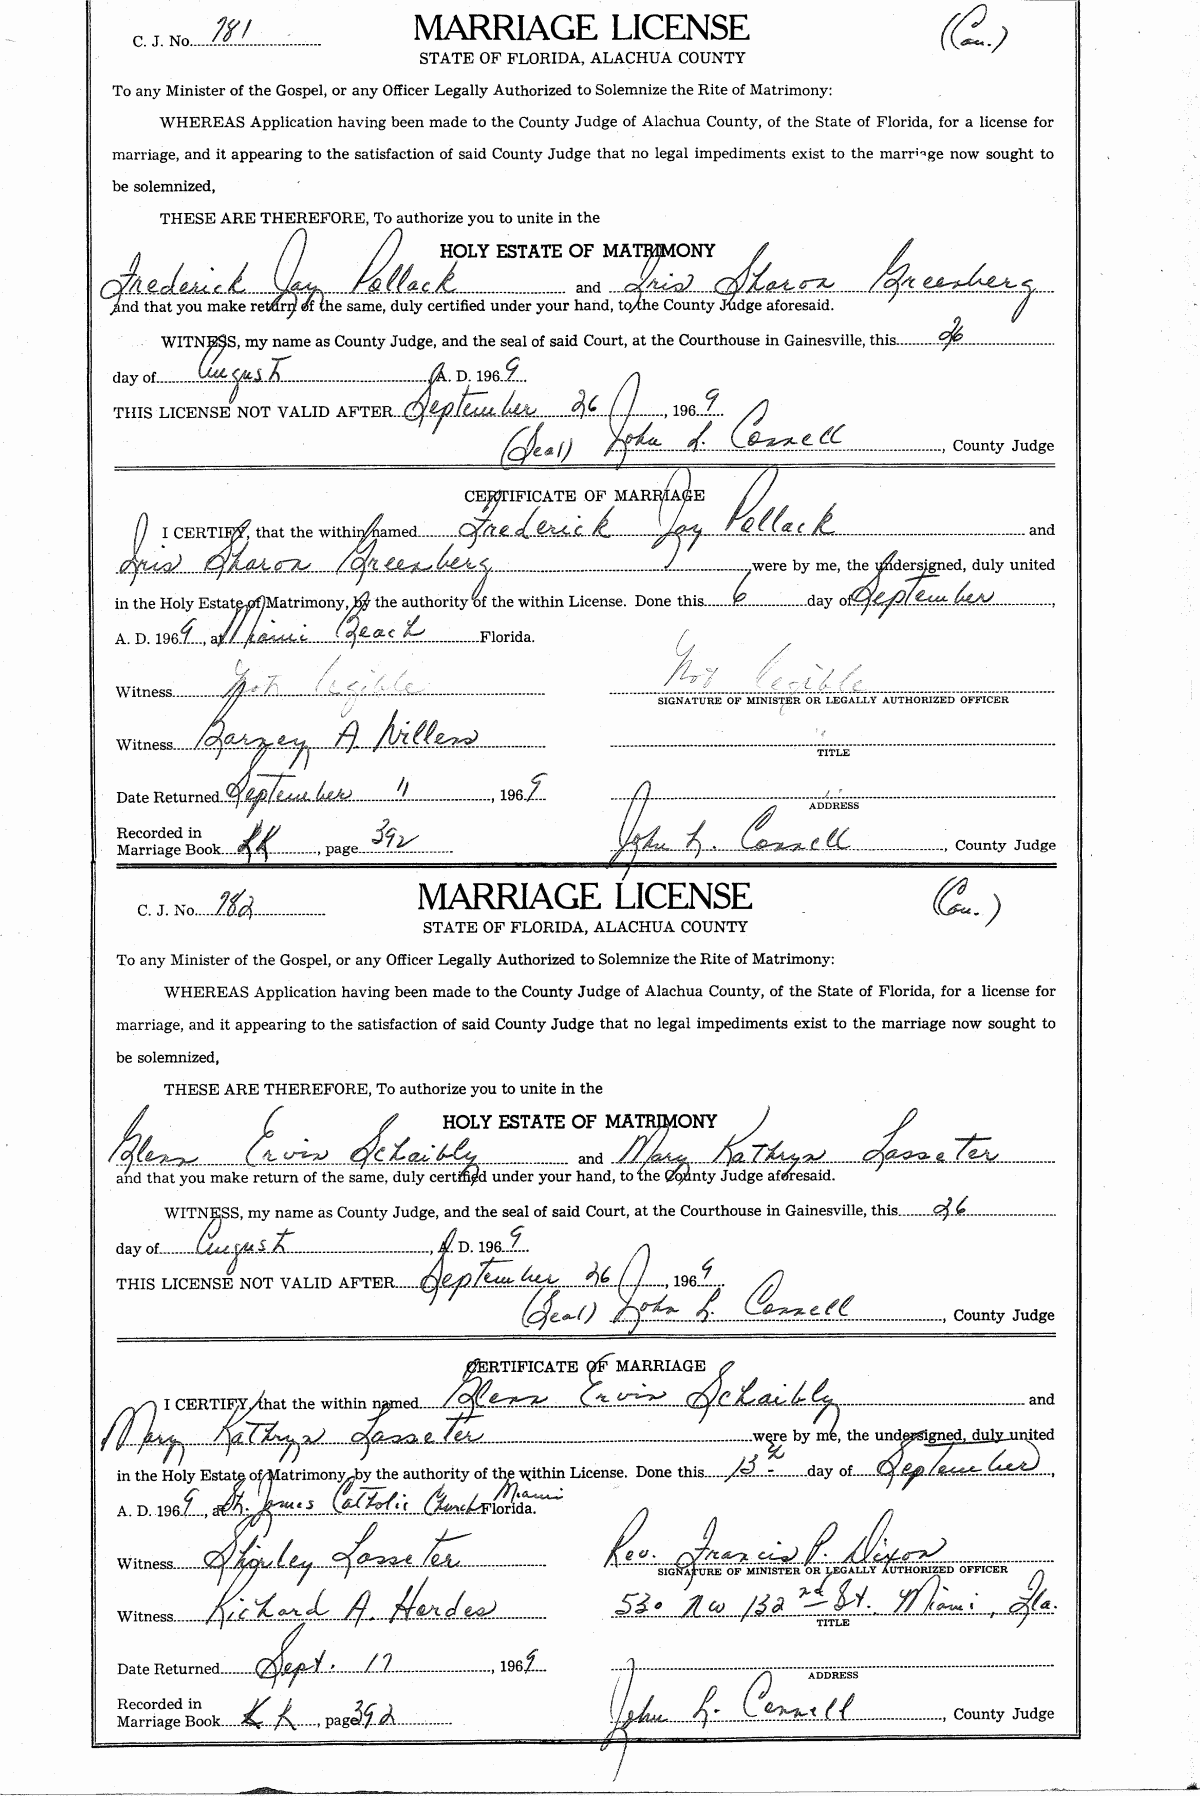 C. J. No. 981
MARRIAGE LICENSE
(Cau.)
STATE OF FLORIDA, ALACHUA COUNTY
To any Minister of the Gospel, or any Officer Legally Authorized to Solemnize the Rite of Matrimony:
WHEREAS Application having been made to the County Judge of Alachua County, of the State of Florida, for a license for
marriage, and it appearing to the satisfaction of said County Judge that no legal impediments exist to the marriage now sought to
be solemnized,
THESE ARE THEREFORE, To authorize you to unite in the
HOLY ESTATE OF MATRIMONY
Frederick Jay Pollack and Iris Sharon Greenberg
and that you make return of the same, duly certified under your hand, to the County Judge aforesaid.
WITNESS, my name as County Judge, and the seal of said Court, at the Courthouse in Gainesville, this 26
day of August A. D. 1969
THIS LICENSE NOT VALID AFTER September 26, 1969
(Seal) John L. Connell, County Judge
CERTIFICATE OF MARRIAGE
I CERTIFY, that the within named Frederick Jay Pollack and
Iris Sharon Greenberg were by me, the undersigned, duly united
in the Holy Estate of Matrimony, by the authority of the within License. Done this 6 day of September,
A. D. 1969, at Miami Beach Florida.
Witness Not legible Not legible
SIGNATURE OF MINISTER OR LEGALLY AUTHORIZED OFFICER
Witness Barney A. Willens
TITLE
Date Returned September 11, 1969
ADDRESS
Recorded in
Marriage Book KK, page 392 John L. Connell, County Judge
C. J. No. 982
MARRIAGE LICENSE
(Cau.)
STATE OF FLORIDA, ALACHUA COUNTY
To any Minister of the Gospel, or any Officer Legally Authorized to Solemnize the Rite of Matrimony:
WHEREAS Application having been made to the County Judge of Alachua County, of the State of Florida, for a license for
marriage, and it appearing to the satisfaction of said County Judge that no legal impediments exist to the marriage now sought to
be solemnized,
THESE ARE THEREFORE, To authorize you to unite in the
HOLY ESTATE OF MATRIMONY
Glenn Ervin Schaibly and Mary Kathryn Lasseter
and that you make return of the same, duly certified under your hand, to the County Judge aforesaid.
WITNESS, my name as County Judge, and the seal of said Court, at the Courthouse in Gainesville, this 26
day of August, A. D. 1969
THIS LICENSE NOT VALID AFTER September 26, 1969
(Seal) John L. Connell, County Judge
CERTIFICATE OF MARRIAGE
I CERTIFY, that the within named Glenn Ervin Schaibly and
Mary Kathryn Lasseter were by me, the undersigned, duly united
in the Holy Estate of Matrimony, by the authority of the within License. Done this 13th day of September,
A. D. 1969, at St. James Catholic Church Miami Florida.
Witness Shirley Lasseter Rev. Francis P. Dixon
SIGNATURE OF MINISTER OR LEGALLY AUTHORIZED OFFICER
Witness Richard A. Hordes 530 NW 132nd St. Miami, Fla.
TITLE
Date Returned Sept. 17, 1969
ADDRESS
Recorded in
Marriage Book KK, page 392 John L. Connell, County Judge